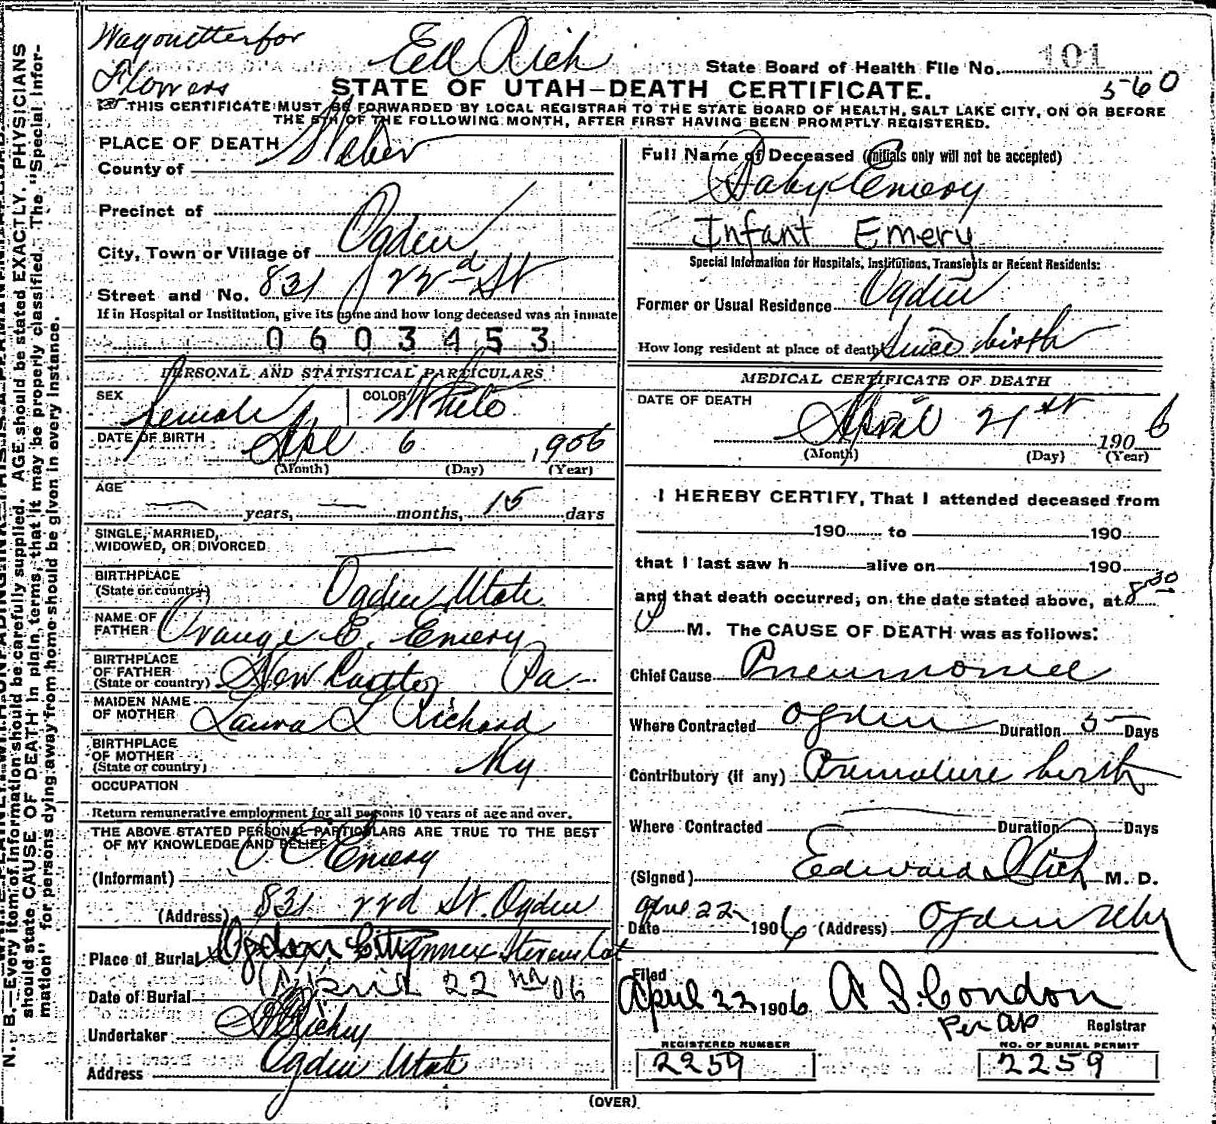 Wagonette for
Flowers
Ed Rich
State Board of Health File No. 101
560
STATE OF UTAH-DEATH CERTIFICATE.
THIS CERTIFICATE MUST BE FORWARDED BY LOCAL REGISTRAR TO THE STATE BOARD OF HEALTH, SALT LAKE CITY, ON OR BEFORE
THE 5TH OF THE FOLLOWING MONTH, AFTER FIRST HAVING BEEN PROMPTLY REGISTERED.
PLACE OF DEATH
County of Weber
Precinct of
City, Town or Village of Ogden
Street and No. 831 22nd St
If in Hospital or Institution, give its name and how long deceased was an inmate
0603453
PERSONAL AND STATISTICAL PARTICULARS
SEX female COLOR White
DATE OF BIRTH Apl 6, 1906
(Month) (Day) (Year)
AGE
— years, — months, 15 days
SINGLE, MARRIED,
WIDOWED, OR DIVORCED
BIRTHPLACE
(State or country) Ogden Utah
NAME OF
FATHER Orange E. Emery
BIRTHPLACE
OF FATHER
(State or country) New Castle, Pa
MAIDEN NAME
OF MOTHER Laura L Richard
BIRTHPLACE
OF MOTHER
(State or country) Ky
OCCUPATION
Return remunerative employment for all persons 10 years of age and over.
THE ABOVE STATED PERSONAL PARTICULARS ARE TRUE TO THE BEST
OF MY KNOWLEDGE AND BELIEF
(Informant) O E Emery
(Address) 831 22d St. Ogden
Place of Burial Ogden City Annex Stevens Lot
Date of Burial April 22nd 06
Undertaker Richey
Address Ogden Utah
Full Name of Deceased (initials only will not be accepted)
Baby Emery
Infant Emery
Special Information for Hospitals, Institutions, Transients or Recent Residents:
Former or Usual Residence Ogden
How long resident at place of death Since birth
MEDICAL CERTIFICATE OF DEATH
DATE OF DEATH
April 21st 1906
(Month) (Day) (Year)
I HEREBY CERTIFY, That I attended deceased from
190 to 190
that I last saw h alive on 190
and that death occurred, on the date stated above, at 8 30
M. The CAUSE OF DEATH was as follows:
Chief Cause Pneumonia
Where Contracted Ogden Duration 5 Days
Contributory (if any) Premature birth
Where Contracted Duration Days
(Signed) Edward I Rich M. D.
Date Apl 22 1906 (Address) Ogden Utah
Filed
April 23 1906 A S. Condon
Per AP Registrar
REGISTERED NUMBER NO. OF BURIAL PERMIT
2259 2259
(OVER)
should state CAUSE OF DEATH in plain terms, that it may be properly classified. The "Special Infor-
mation" for persons dying away from home should be given in every instance.